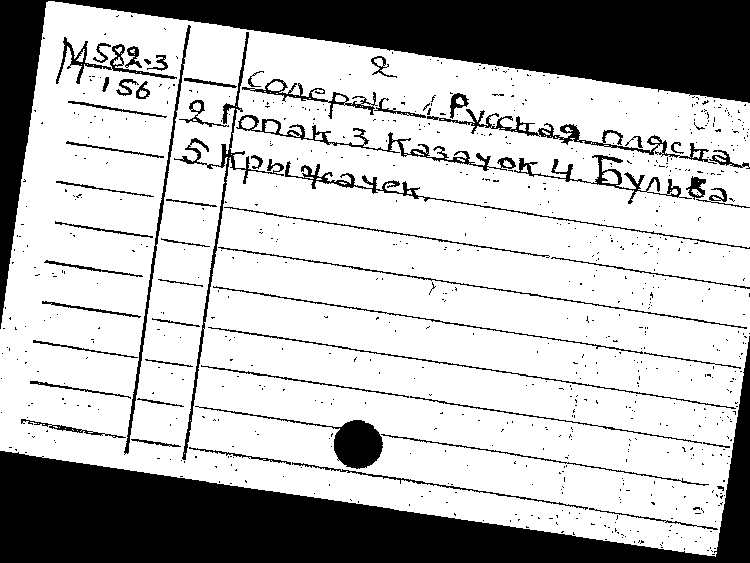 2
М 582.3
156
Содерж. 1. Русская пляска.
2. Гопак. 3. Казачок 4. Бульба.
5. Крыжачек.